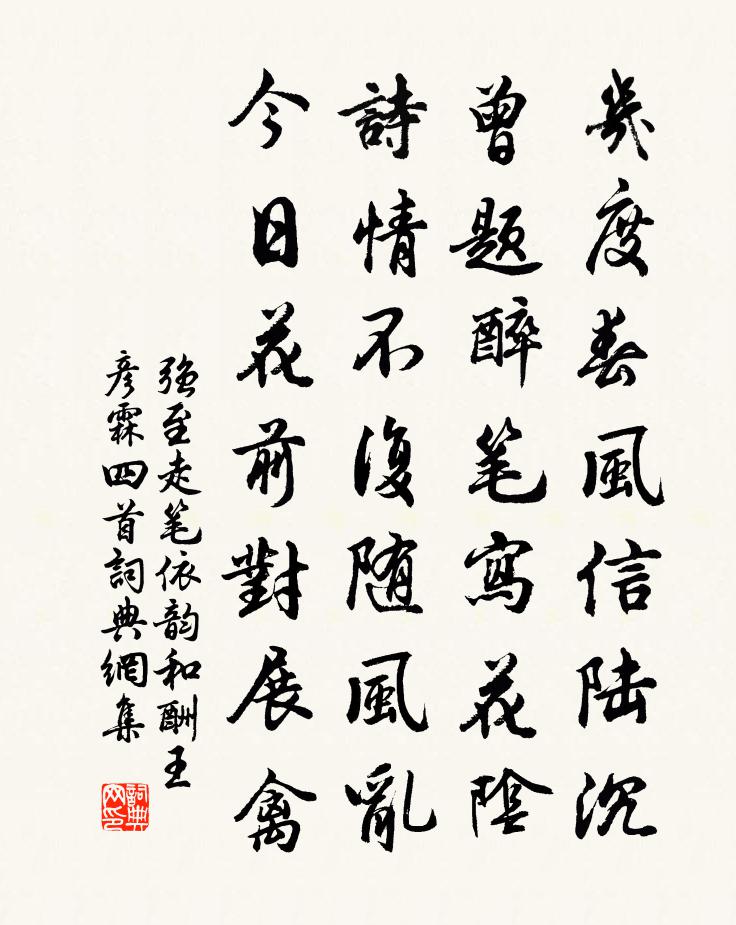 幾度春風信陆沉
曾题醉笔寫花陰
詩情不復随風亂
今日花前對展禽
強至走笔依韵和酬王
彦霖四首詞典網集
詞典网印